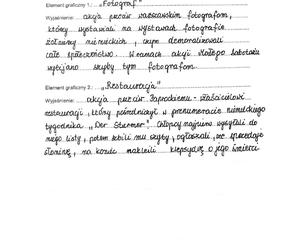 Element graficzny 1.: „Fotograf”
Wyjaśnienie: akcja przeciw warszawskim fotografom,
którzy wystawiali na wystawach fotografie
żołnierzy niemieckich, czym demoralizowali
całe społeczeństwo. W ramach akcji małego sabotażu
wybijano szyby tym fotografom.
Element graficzny 2.: „Restauracja”
Wyjaśnienie: akcja przeciw Paprockiemu - właścicielowi
restauracji, który pośredniczył w prenumeracie niemieckiego
tygodnika „Der Stürmer”. Chłopcy najpierw wysyłali do
niego listy, potem zbili mu szyby, ogłaszali, że sprzedaje
słoninę, na koniec nakleili klepsydrę o jego śmierci